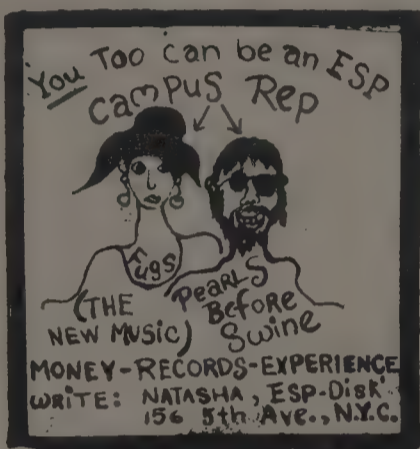 You Too can be an ESP
campus Rep
Fugs
(THE
NEW MUSIC)
PEARLS
BEFORE
Swine
MONEY-RECORDS-EXPERIENCE
WRITE: NATASHA, ESP-DISK'
156 5th Ave., N.Y.C.